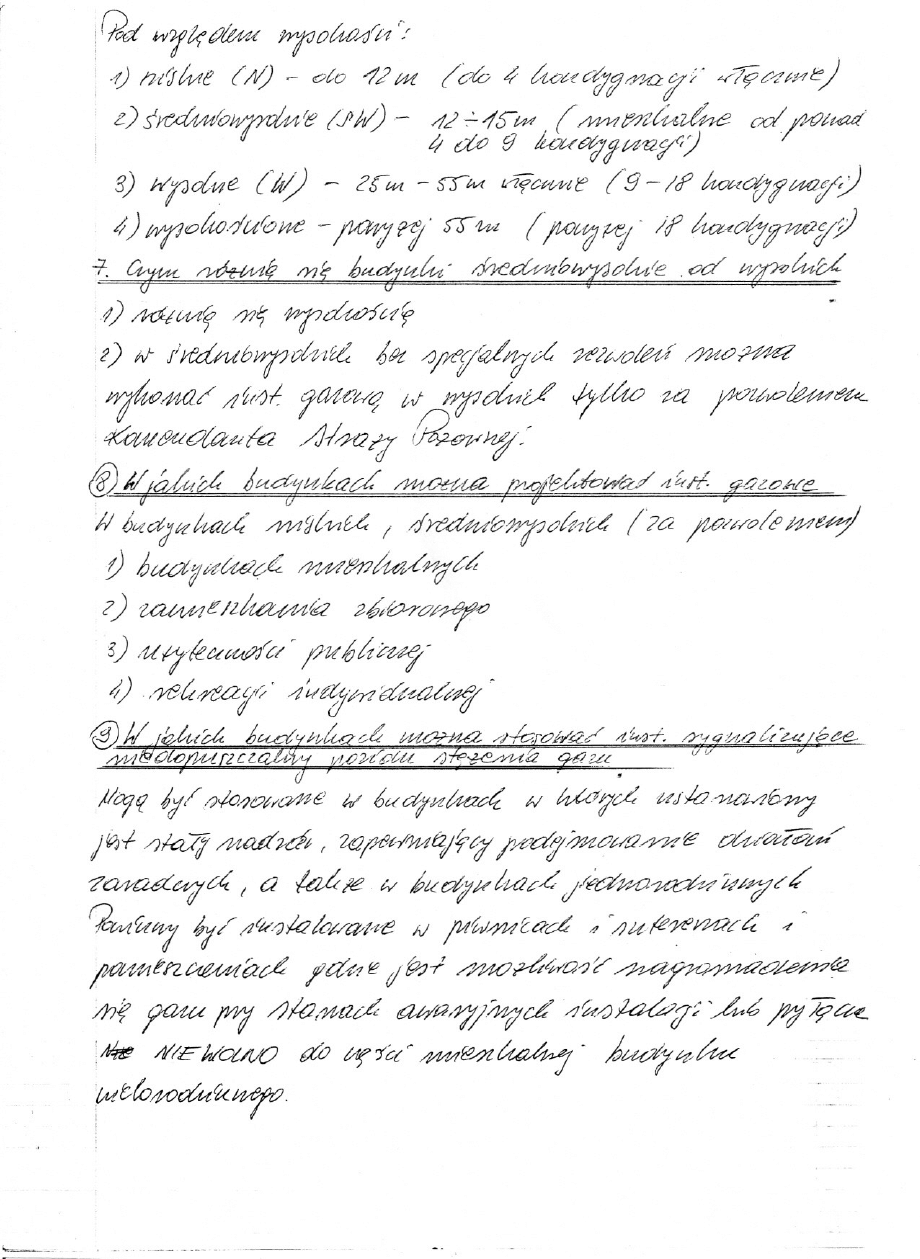 Pod względem wysokości:
1) niskie (N) - do 12m (do 4 kondygnacji włącznie)
2) średniowysokie (SW) - 12÷15m (mieszkalne od ponad
4 do 9 kondygnacji)
3) wysokie (W) - 25m - 55m włącznie (9-18 kondygnacji)
4) wysokościowe - powyżej 55m (powyżej 18 kondygnacji)
7. Czym różnią się budynki średniowysokie od wysokich
1) różnią się wysokością
2) w średniowysokich bez specjalnych zezwoleń można
wykonać inst. gazową w wysokich tylko za pozwoleniem
Komendanta Straży Pożarnej.
8) W jakich budynkach można projektować inst. gazowe
W budynkach niskich, średniowysokich (za pozwoleniem)
1) budynkach mieszkalnych
2) zamieszkania zbiorowego
3) użyteczności publicznej
4) rekreacji indywidualnej
9) W jakich budynkach można stosować inst. sygnalizujące
niedopuszczalny poziom stężenia gazu
Mogą być stosowane w budynkach w których ustanowiony
jest stały nadzór, zapewniający podejmowanie działań
zaradczych, a także w budynkach jednorodzinnych
Powinny być instalowane w piwnicach i suterenach i
pomieszczeniach gdzie jest możliwość nagromadzenia
się gazu przy stanach awaryjnych instalacji lub przyłącza
NIE WOLNO do części mieszkalnej budynku
wielorodzinnego.